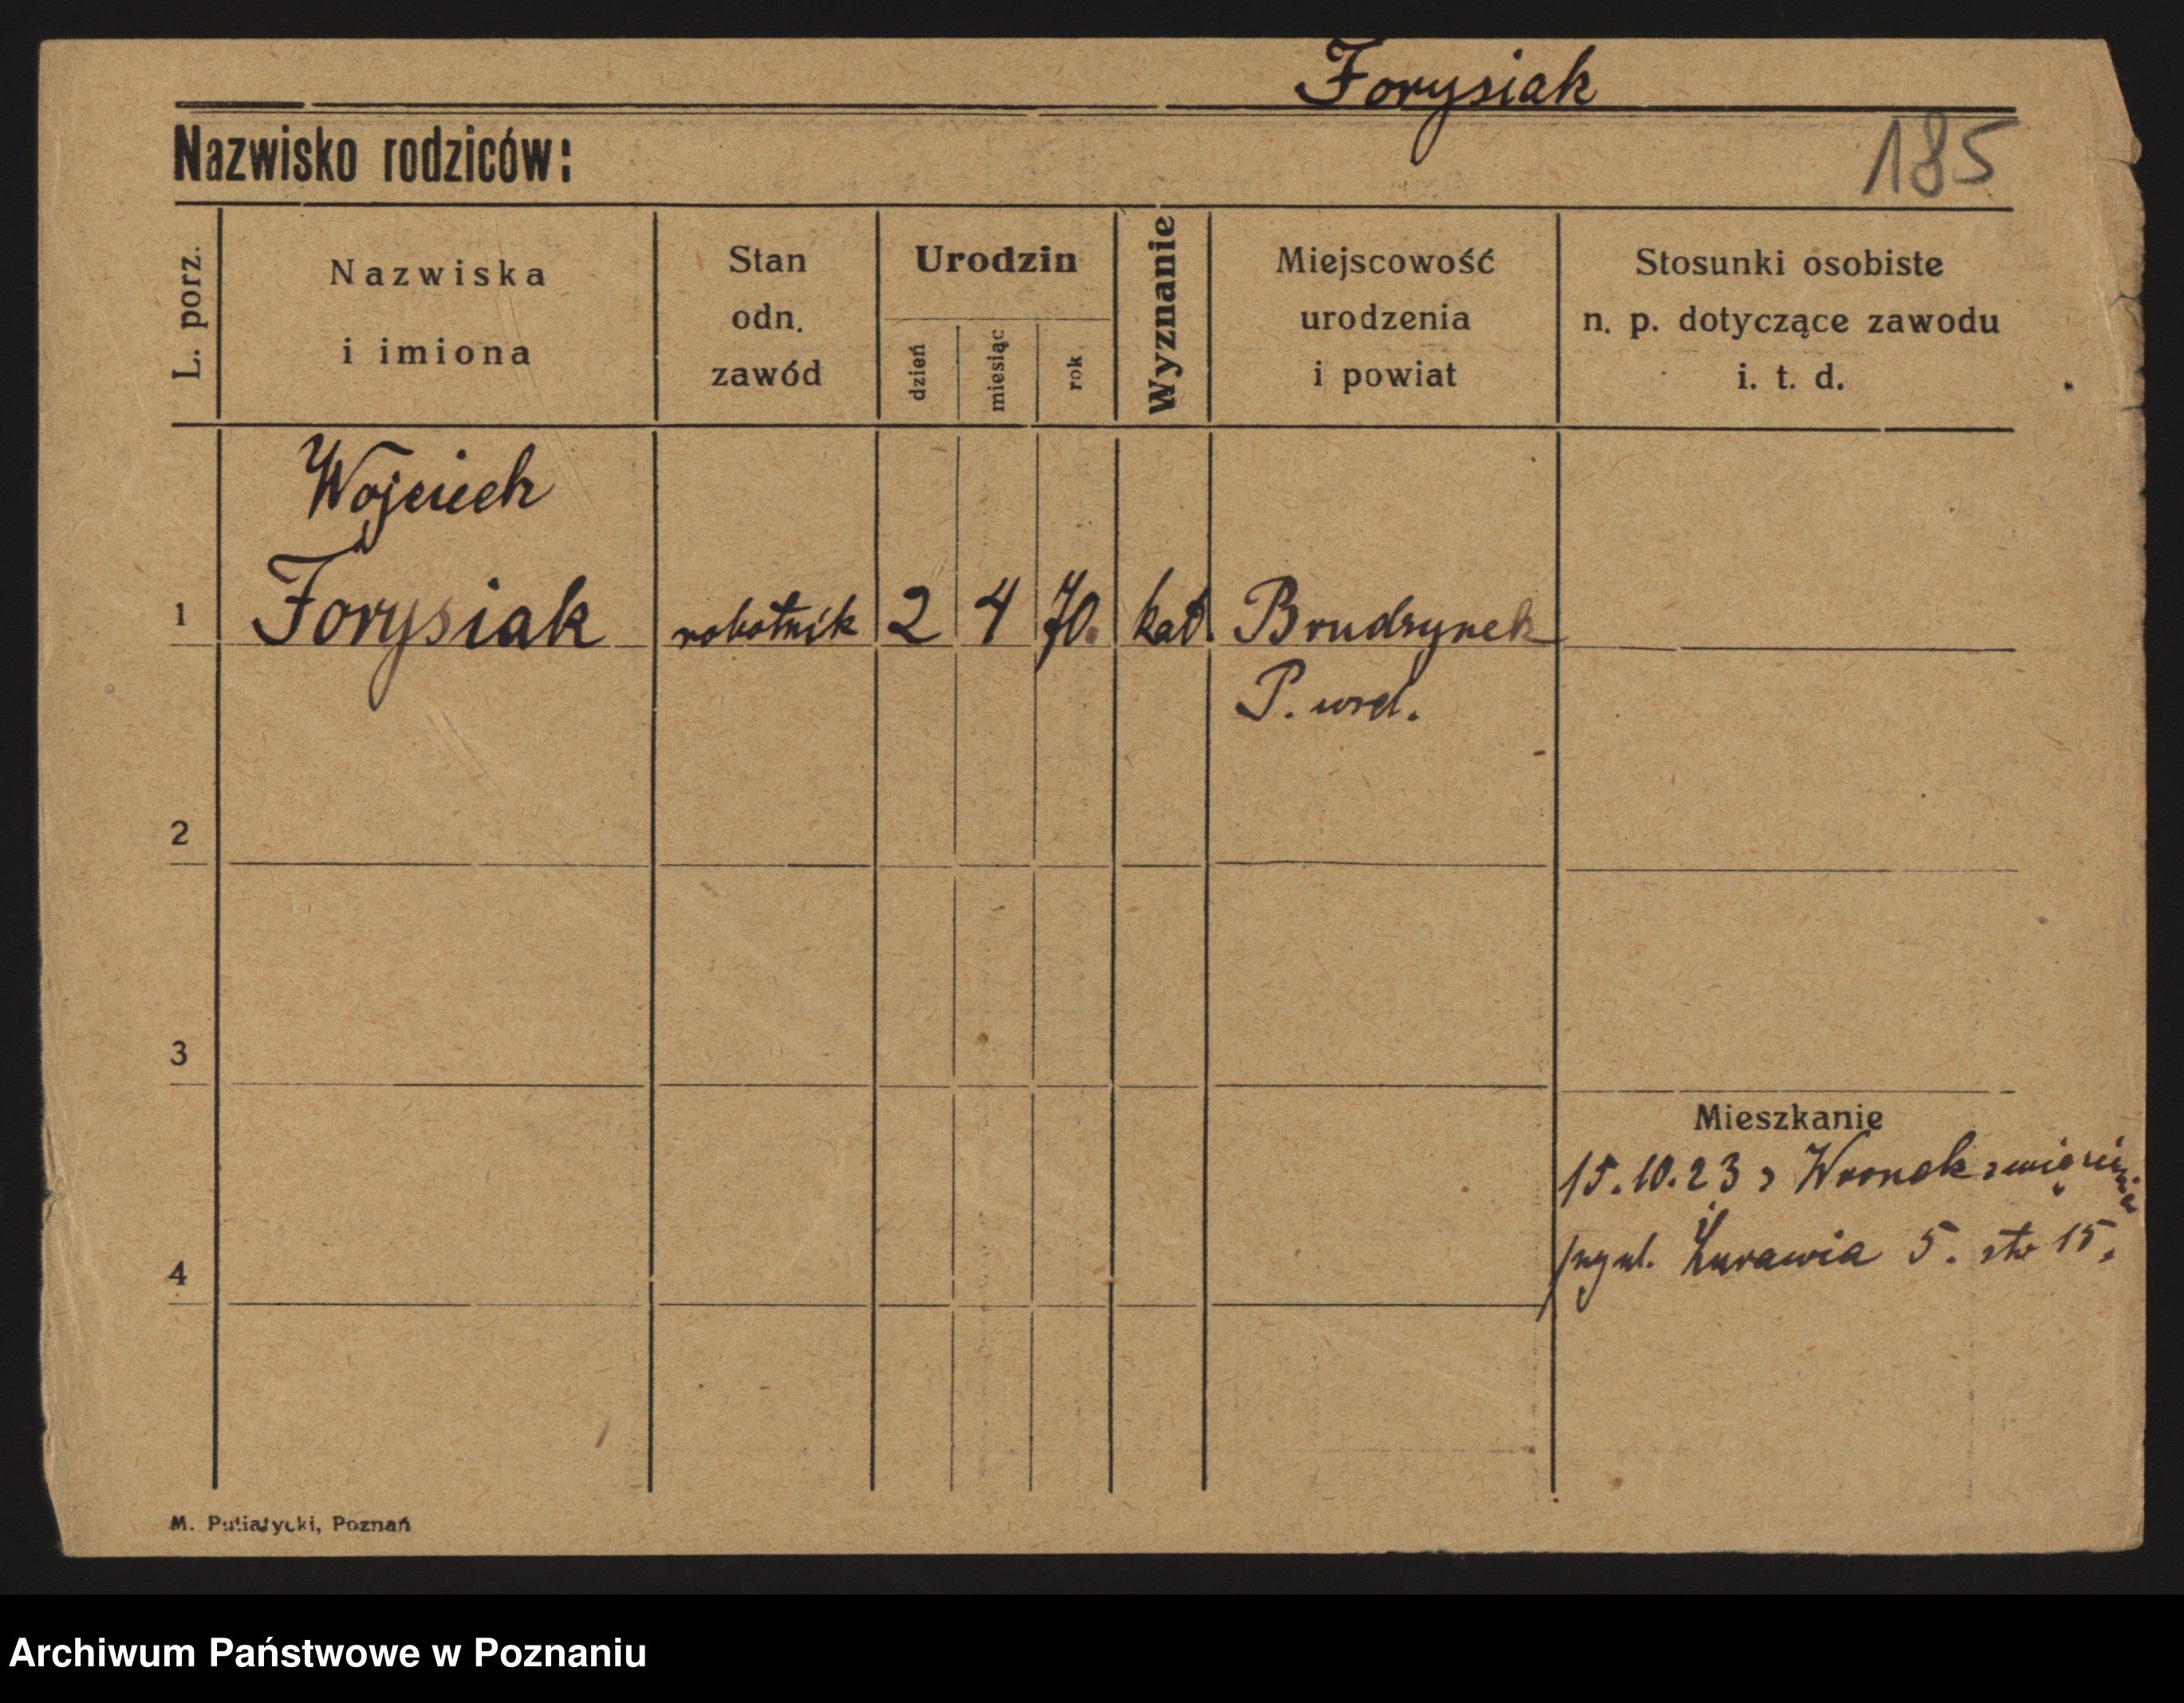 Forysiak
Nazwisko rodziców:
185
L. porz.
Nazwiska
i imiona
Stan
odn.
zawód
Urodzin
dzień
miesiąc
rok
Wyznanie
Miejscowość
urodzenia
i powiat
Stosunki osobiste
n. p. dotyczące zawodu
i. t. d.
Wojciech
1 Forysiak robotnik 2 4 70. kat. Brudzynek
P.
2
3
Mieszkanie
15.10.23 z Wronek z więzienia
4
Żurawia 5. 15.
M. Putiatycki, Poznań
Archiwum Państwowe w Poznaniu